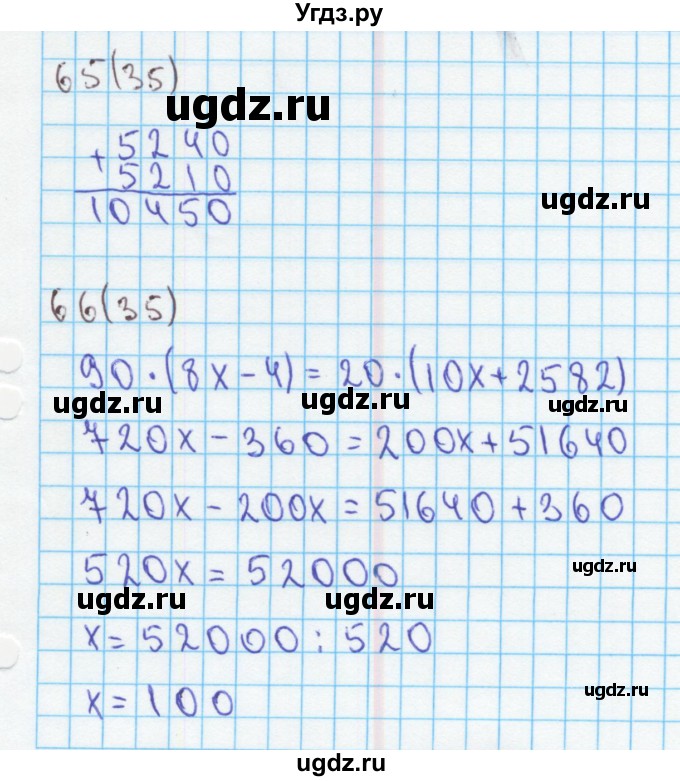 Угдз.ру
65(35)
ugdz.ru
+5240
5210
10450
ugdz.ru
ugdz.ru
66(35)
90·(8x-4)=20·(10x+2582)
ugdz.ru
ugdz.ru
ugdz.ru
720x-360=200x+51640
720x-200x=51640+360
520x=52000
ugdz.ru
ugdz.ru
ugdz.ru
x=52000:520
x=100
ugdz.ru
ugdz.ru